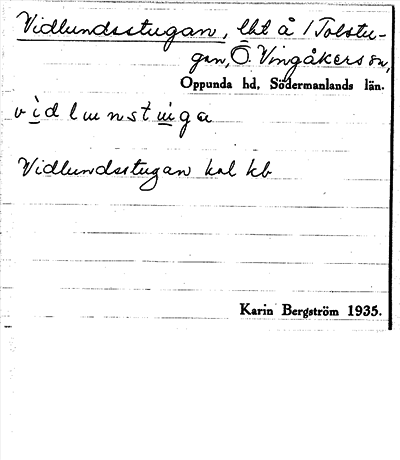 Vidlundsstugan, lht å 1 Tolstu-
gan, Ö. Vingåkers sn,
Oppunda hd, Södermanlands län.
Vidlundsstugan kal kb
Karin Bergström 1935.